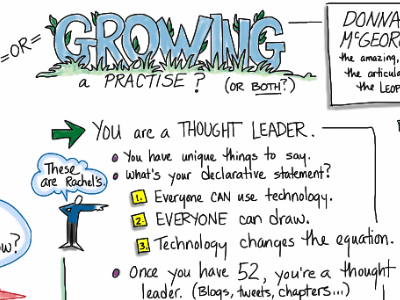 =OR=
GROWING
a PRACTISE?
(OR BOTH?)
DONNA
McGEORG
the amazing,
the articula
the LEOP
YOU are a THOUGHT LEADER.
You have unique things to say.
What's your declarative statement?
These
are Rachel's.
1. Everyone CAN use technology.
2. EVERYONE can draw.
3. Technology changes the equation.
Once you have 52, you're a thought
leader. (Blogs, tweets, chapters...)
ow?